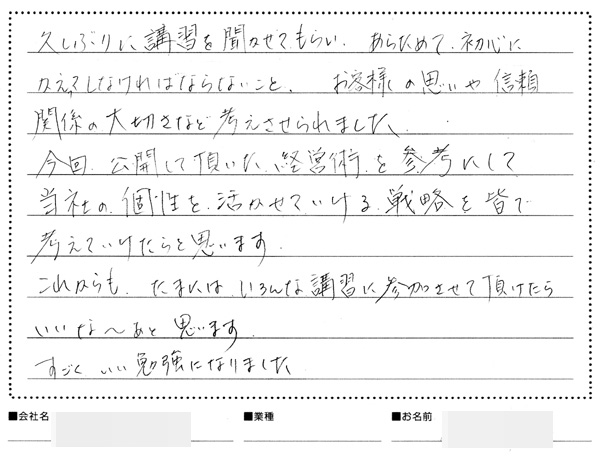 久しぶりに講習を聞かせてもらい、あらためて、初心に
かえってしなければならないこと、お客様の思いや信頼
関係の大切さなど考えさせられました。
今回、公開して頂いた、経営術を参考にして
当社の個性を活かせていける戦略を皆で
考えていけたらと思います。
これからも、たまには、いろんな講習に参加させて頂けたら
いいな〜あと思います。
すごくいい勉強になりました
■会社名 ■業種 ■お名前